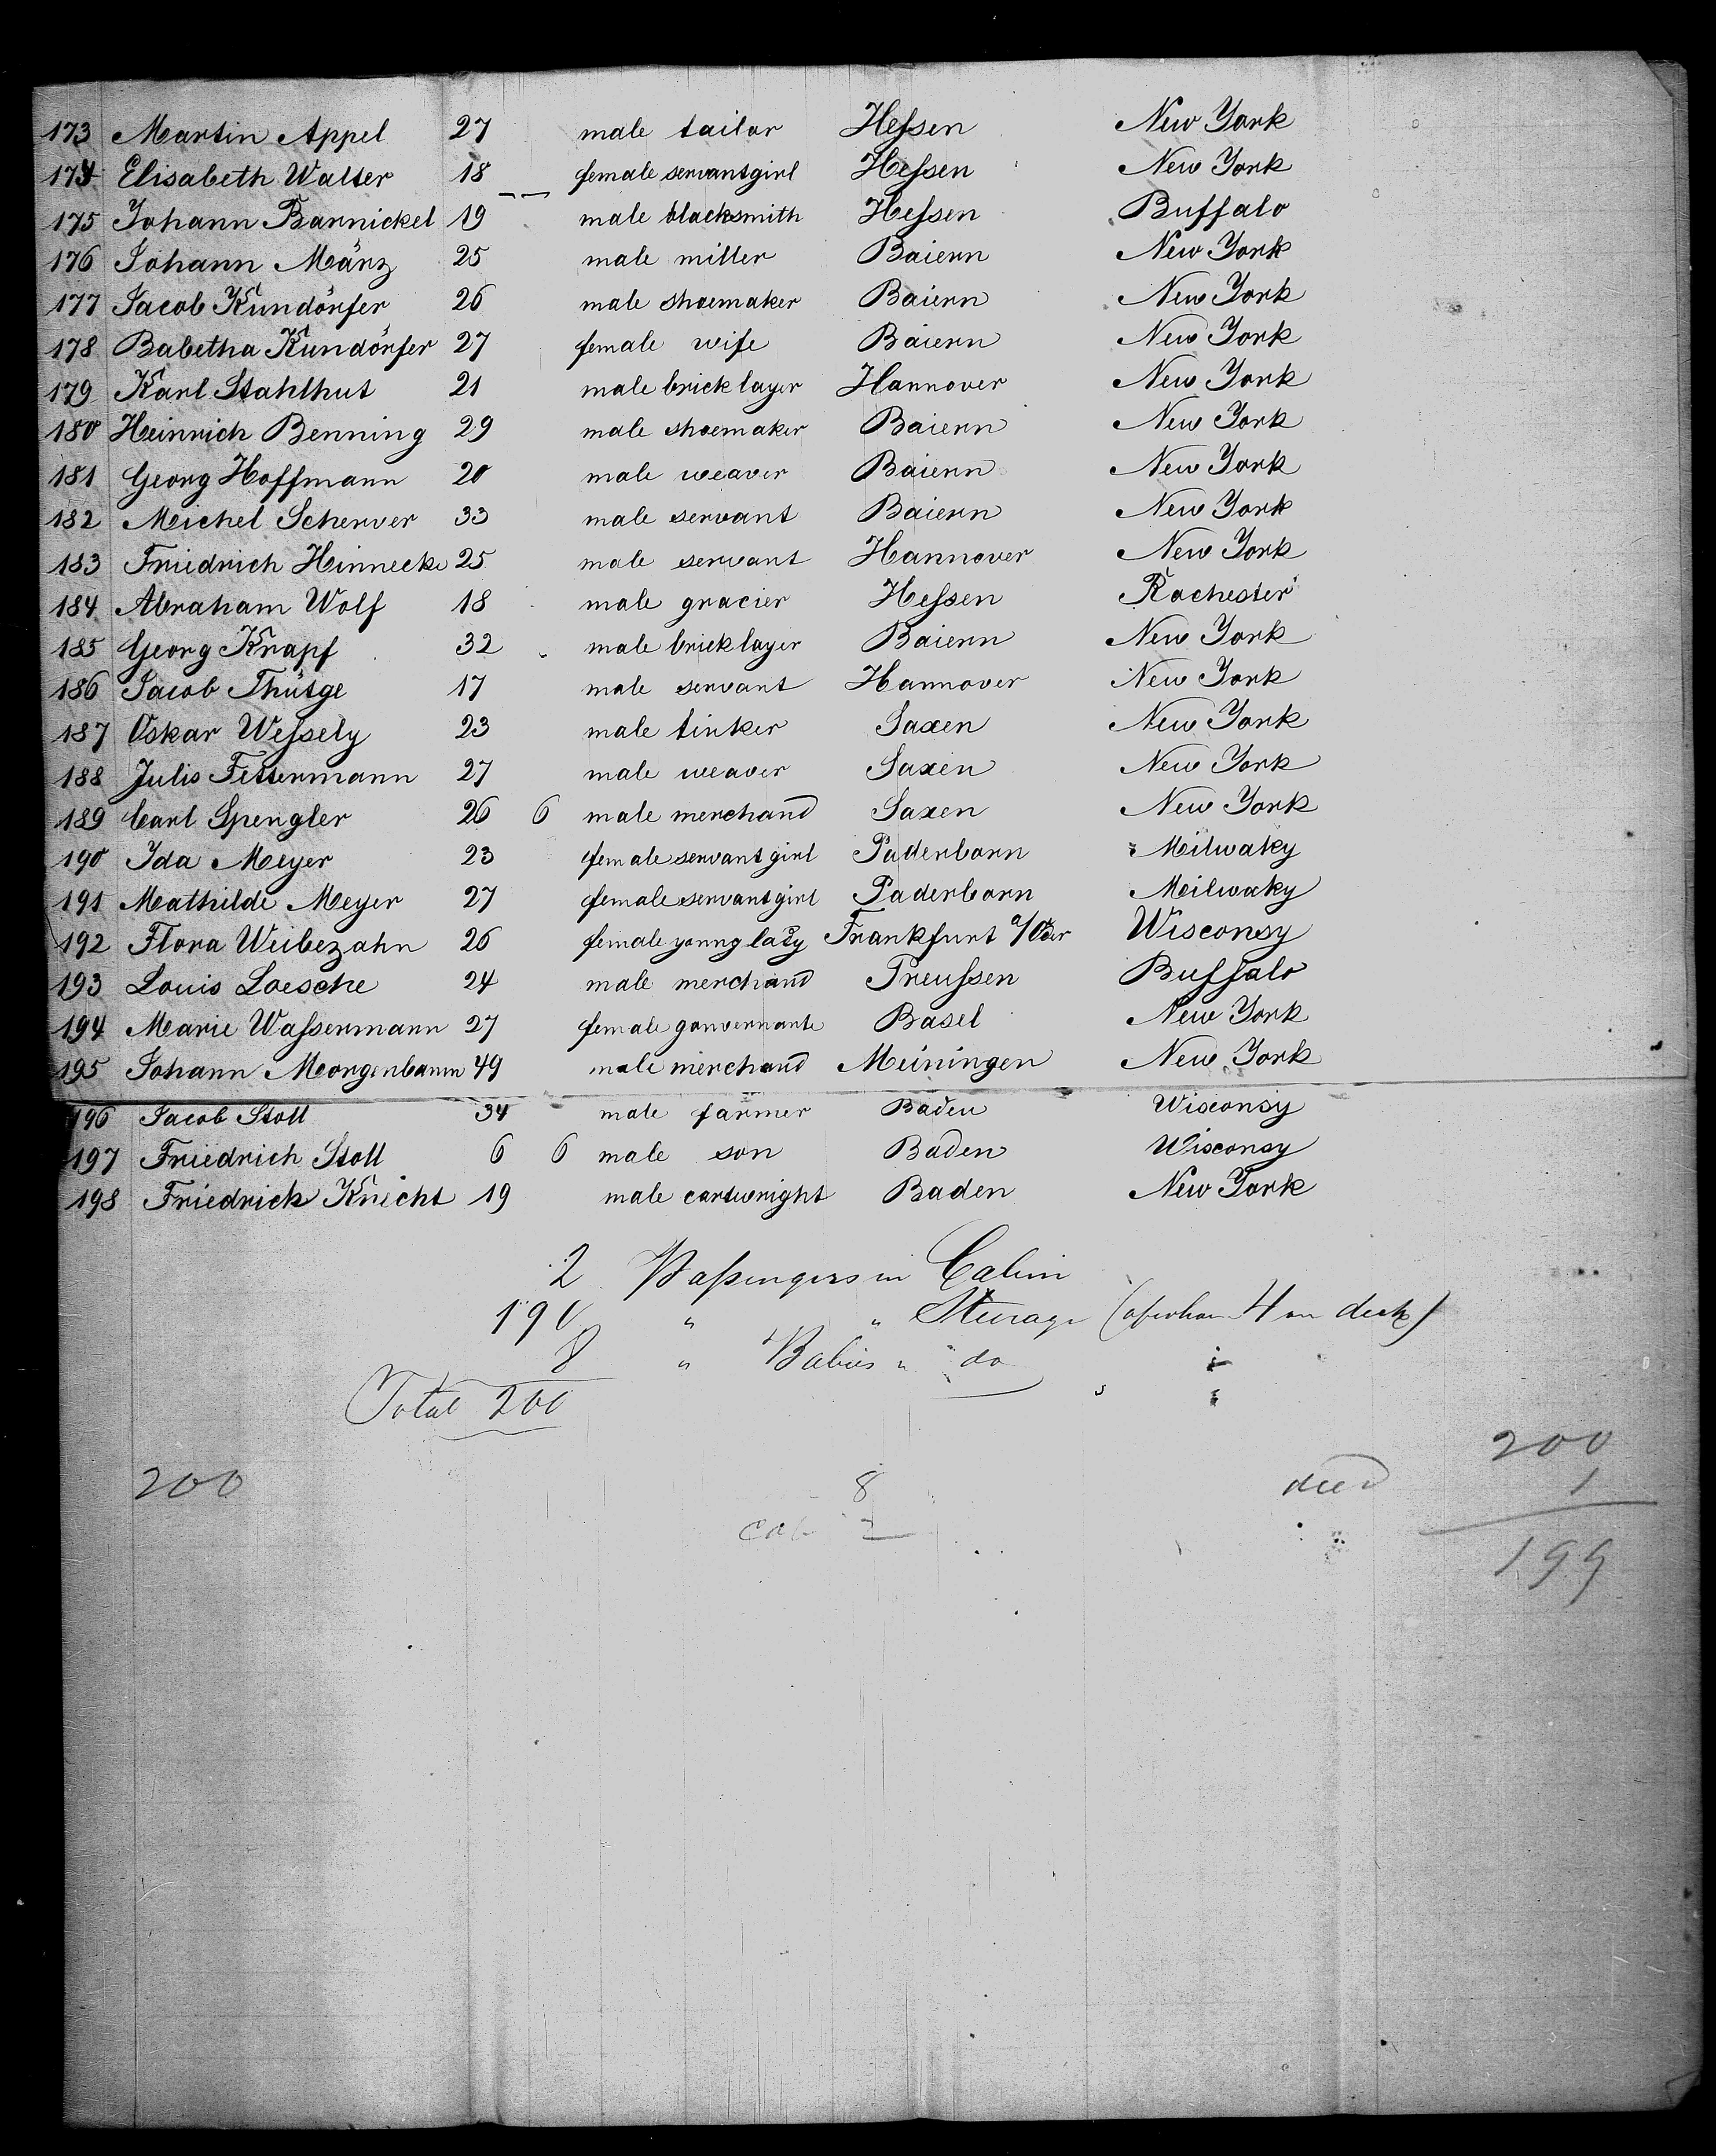 173 Martin Appel 27 male tailor Heſsen New York
174 Elisabeth Walter 18 female servantgirl Heſsen New York
175 Johann Barnickel 19 male blacksmith Heſsen Buffalo
176 Johann März 25 male miller Baiern New York
177 Jacob Kundörfer 26 male shoemaker Baiern New York
178 Babetha Kundörfer 27 female wife Baiern New York
179 Karl Stahlhut 21 male bricklayer Hannover New York
180 Heinrich Benning 29 male shoemaker Baiern New York
181 Georg Hoffmann 20 male weaver Baiern New York
182 Michel Scherver 33 male servant Baiern New York
183 Friedrich Hinnecke 25 male servant Hannover New York
184 Abraham Wolf 18 male gracier Heſsen Rochester
185 Georg Knapf 32 male bricklayer Baiern New York
186 Jacob Thütge 17 male servant Hannover New York
187 Oskar Weſsely 23 male tinker Saxen New York
188 Julis Fettermann 27 male weaver Saxen New York
189 Carl Spengler 26 6 male merchand Saxen New York
190 Ida Meyer 23 female servantgirl Paderborn Milwaky
191 Mathilde Meyer 27 female servantgirl Paderborn Milwaky
192 Flora Weibezahn 26 female young lady Frankfurt a/Oder Wisconsy
193 Louis Loesche 24 male merchand Preuſsen Buffalo
194 Marie Waſsermann 27 female gouvernante Basel New York
195 Johann Morgenbaum 49 male merchand Meiningen New York
196 Jacob Stoll 34 male farmer Baden Wisconsy
197 Friedrich Stoll 6 6 male son Baden Wisconsy
198 Friedrich Knecht 19 male cartwright Baden New York
2 Paſsengers in Cabin
190 " " Steurage ( 4 on deck)
8 " Babies " do
Total 200
200
200 8 died 1
cab 2
199